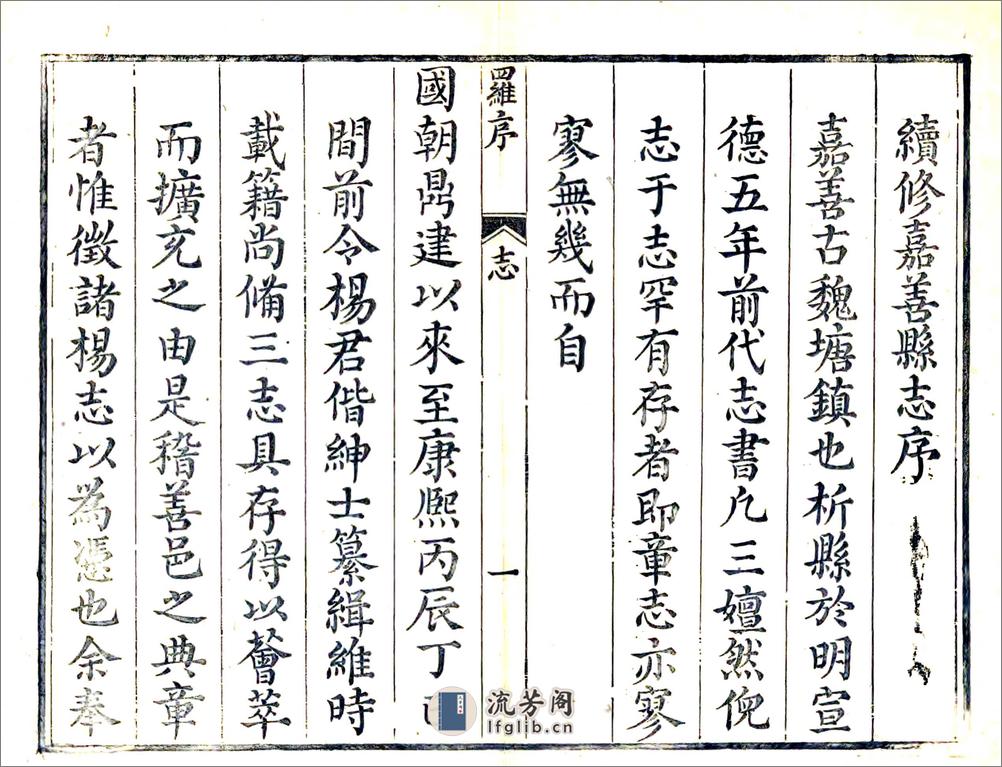 續修嘉善縣志序
嘉善古魏塘鎮也析縣於明宣
德五年前代志書凡三嬗然倪
志于志罕有存者即章志亦寥
寥無幾而自
羅序 志 一
國朝鼎建以來至康熈丙辰丁
間前令楊君偕紳士纂緝維時
載籍尚俻三志具存得以薈萃
而擴充之由是稽善邑之典章
者惟徵諸楊志以為憑也余奉
流芳阁
lfglib.cn